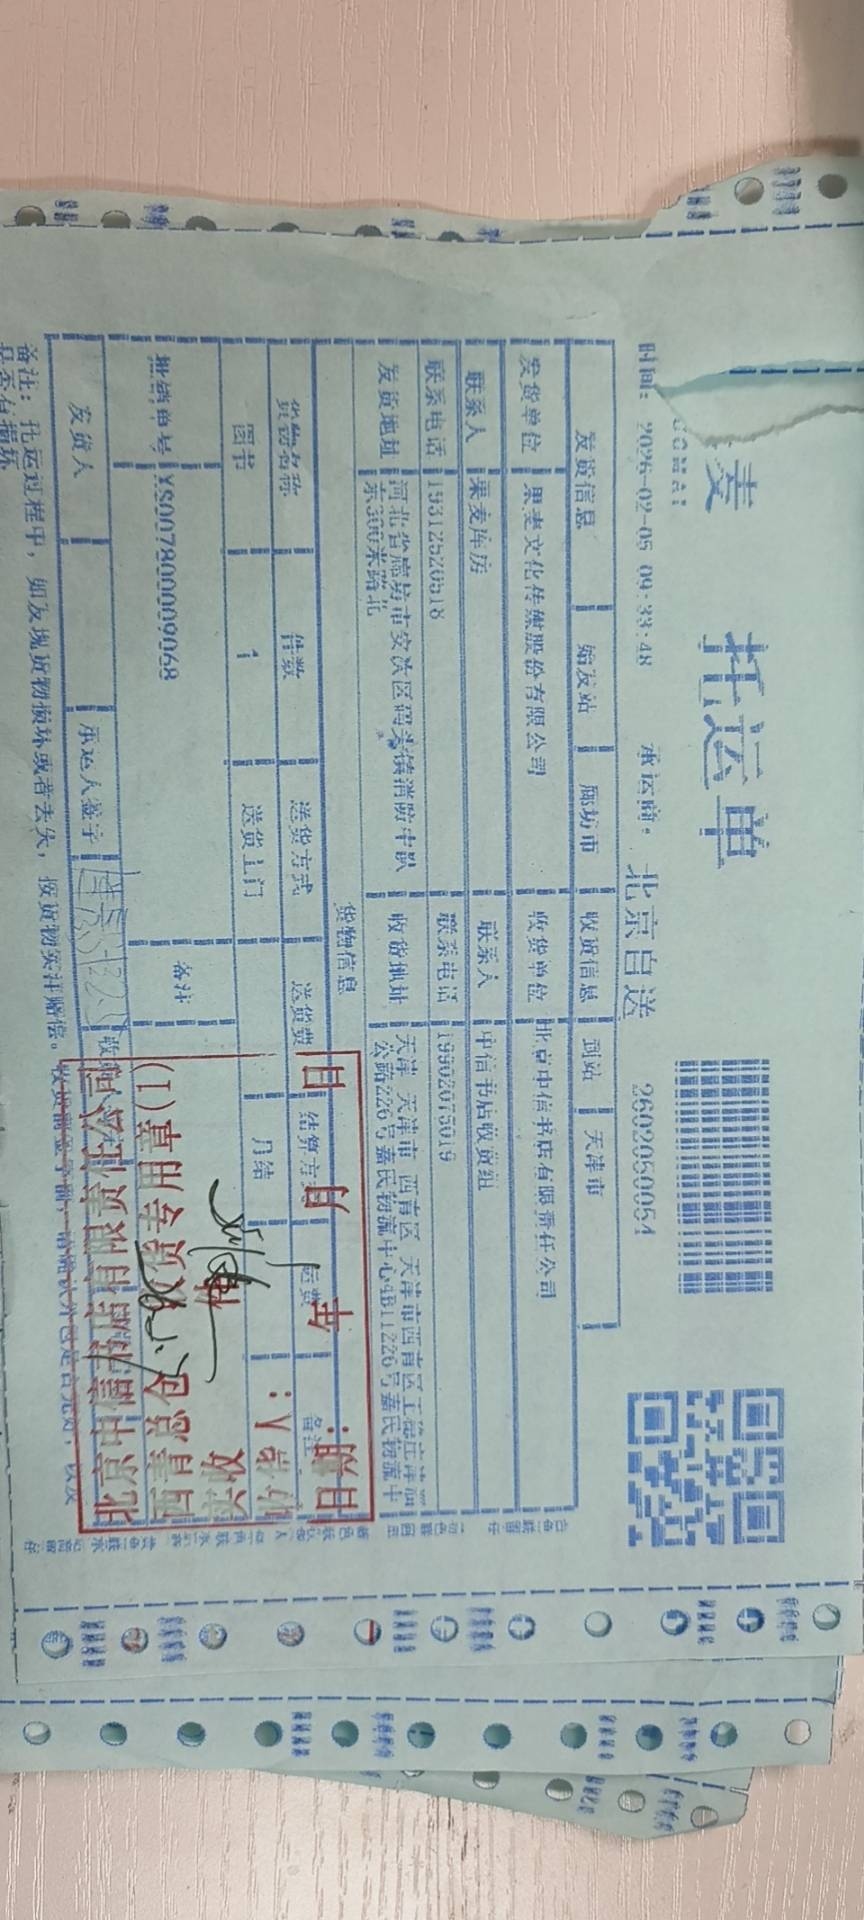 麦
托运单
时间: 2026-02-05 09:33:48 承运商: 北京自送 2602050054
发货信息 始发站 廊坊市 收货信息 到站 天津市
发货单位 果麦文化传媒股份有限公司 收货单位 北京中信书店有限责任公司
联系人 果麦库房 联系人 中信书店收货组
联系电话 19312520518 联系电话 19902075019
发货地址 河北省廊坊市安次区码头镇消防中队
东300米路北
收货地址 天津 天津市 西青区 天津市西青区
公路226号嘉民物流中心4B11226号嘉民物流中
货物信息
货物名称 件数 送货方式 送货费 结算方 运费 备注
图书 1 送货上门 月结
批销单号 XS007800009068 备注
发货人 承运人签字
备注: 托运过程中, 如发现货物损坏或者丢失, 按货物实洋赔偿。
是否有损坏
北京中信书店有限责任公司
西青总仓 收货专用章(1)
实收 件
收货人:
日期: 年 月 日